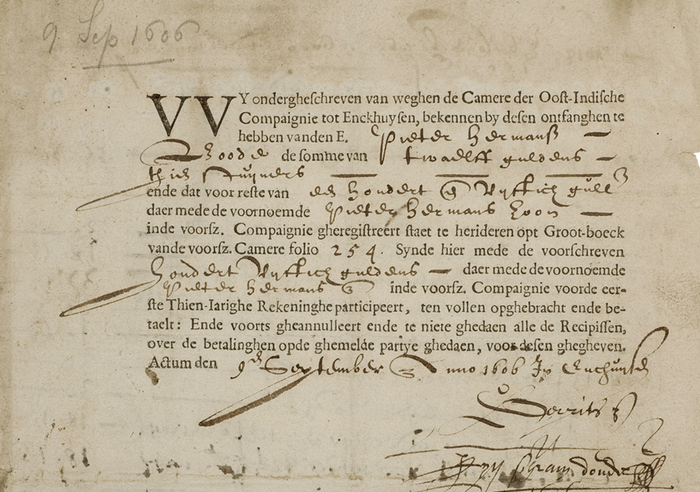 9 Sep 1606
VVY onderghefchreven van weghen de Camere der Ooſt-Indiſche
Compaignie tot Enckhuyſen, bekennen by deſen ontfanghen te
hebben vanden E. Pieter Hermanſz
Roode de ſomme van twaelff guldens
thien stuyvers
ende dat voor reſte van hondert Vyftich guld
daer mede de voornoemde Pieter Hermans Zoon
inde voorſz. Compaignie gheregiſtreert ſtaet te herideren opt Groot-boeck
vande voorſz. Camere folio 254. Synde hier mede de voorſchreven
hondert Vyftich guldens daer mede de voornoemde
Pieter Hermans inde voorſz. Compaignie voorde eer-
ſte Thien-Iarighe Rekeninghe participeert, ten vollen opghebracht ende be-
taelt: Ende voorts gheannulleert ende te niete ghedaen alle de Recipiſſen,
over de betalinghen opde ghemelde partye ghedaen, voor deſen ghegheven.
Actum den 9en September Anno 1606 In Enchuyſen
Gerritsz